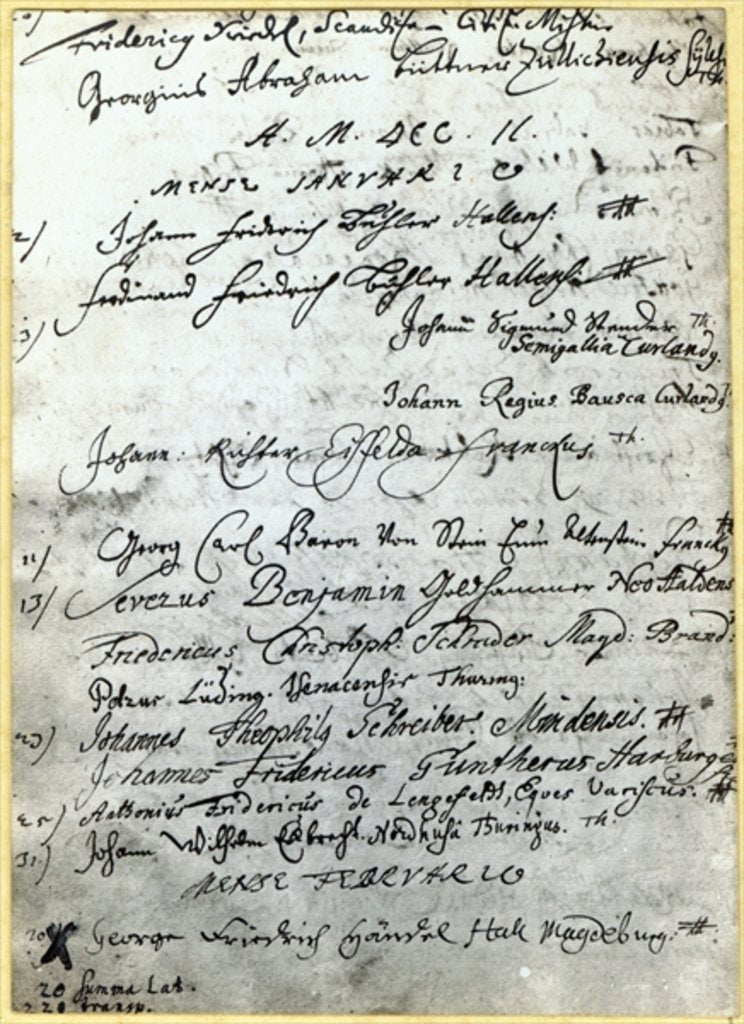 Fridericg
Georgius Abraham Büttner Züllichiensis
A. M. DCC. II.
MENSE JANVARIO
2/ Johann Friderich Bühler Hallens: #
Ferdinand Friedrich Bühler Hallens #
3/ Johann Sigmund Stender Th.
Semigallia Curlandg.
Johann Regius Bausca Curlandg.
Johann: Richter Eisfelda Franckus Th.
11/ Georg Carl Baron Von Stein Franckg #
13/ Severus Benjamin Goldhammer NeoHaldens
Fridericus Christoph: Schrader Magd: Brand:
Lüding. Isenacensis Thuring:
23) Johannes Theophilg Schreiber. Mindensis. #
Johannes Fridericus Guntherus Harburg
25) Anthonius Fridericus de Lengefeldt, Eques Variscus. #
31) Johann Wilhelm Nordhusa Turingus. Th.
MENSE FEBRVARIO
10 X George Friedrich Händel Hall Magdeburg: #
20 Summa Lat.
220 transp.